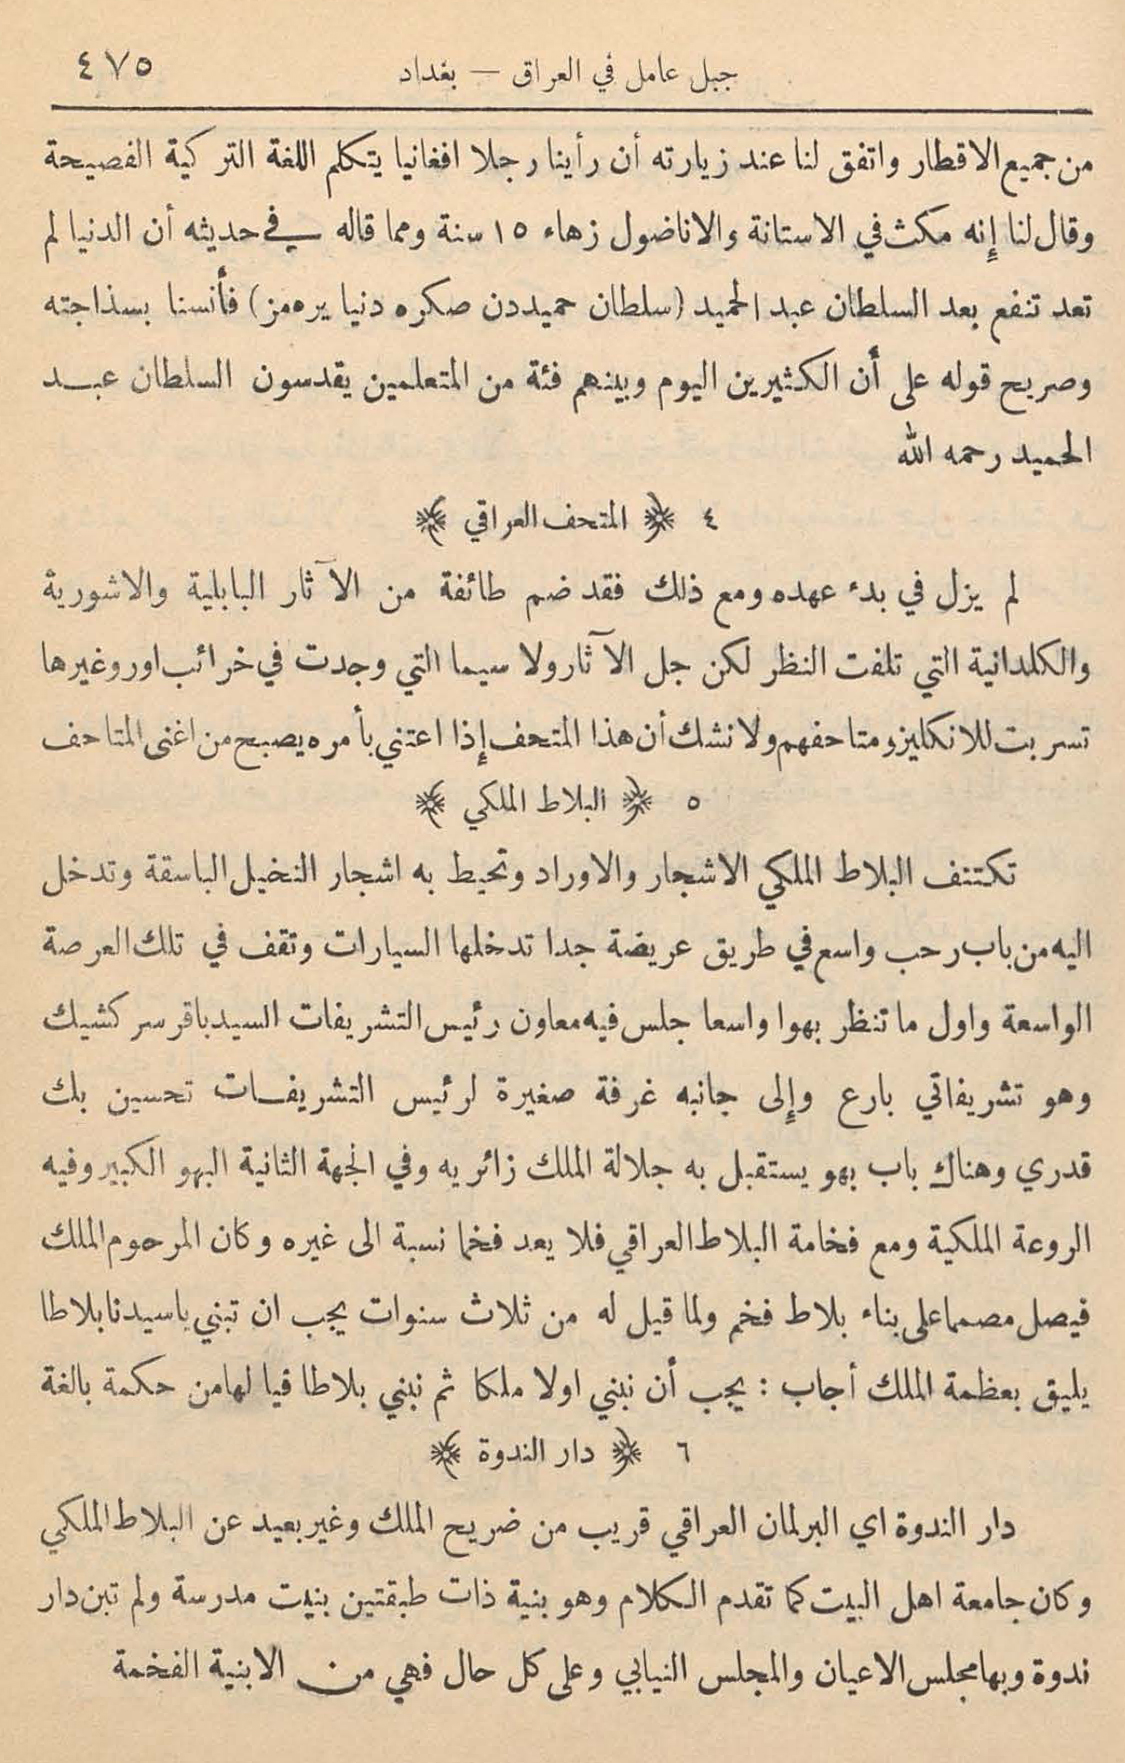 جبل عامل في العراق — بغداد ٤٧٥
من جميع الاقطار واتفق لنا عند زيارته أن رأينا رجلا افغانيا يتكلم اللغة التركية الفصيحة
وقال لنا إنه مكث في الاستانة والاناضول زهاء ١٥ سنة ومما قاله في حديثه أن الدنيا لم
تعد تنفع بعد السلطان عبد الحميد (سلطان حميددن صكره دنيا يره مز) فأنسنا بسذاجته
وصريح قوله على أن الكثيرين اليوم وبينهم فئة من المتعلمين يقدسون السلطان عبد
الحميد رحمه الله
٤ ﴿ المتحف العراقي ﴾
لم يزل في بدء عهده ومع ذلك فقد ضم طائفة من الآثار البابلية والاشورية
والكلدانية التي تلفت النظر لكن جل الآثار ولا سيما التي وجدت في خرائب اور وغيرها
تسربت للانكليز ومتاحفهم ولا نشك أن هذا المتحف إذا اعتني بأمره يصبح من اغنى المتاحف
٥ ﴿ البلاط الملكي ﴾
تكتنف البلاط الملكي الاشجار والاوراد وتحيط به اشجار النخيل الباسقة وتدخل
اليه من باب رحب واسع في طريق عريضة جدا تدخلها السيارات وتقف في تلك العرصة
الواسعة واول ما تنظر بهوا واسعا جلس فيه معاون رئيس التشريفات السيد باقر سركشيك
وهو تشريفاتي بارع وإلى جانبه غرفة صغيرة لرئيس التشريفات تحسين بك
قدري وهناك باب بهو يستقبل به جلالة الملك زائريه وفي الجهة الثانية البهو الكبير وفيه
الروعة الملكية ومع فخامة البلاط العراقي فلا يعد فخما نسبة الى غيره وكان المرحوم الملك
فيصل مصمما على بناء بلاط فخم ولما قيل له من ثلاث سنوات يجب ان تبني ياسيدنا بلاطا
يليق بعظمة الملك أجاب : يجب أن نبني اولا ملكا ثم نبني بلاطا فيا لها من حكمة بالغة
٦ ﴿ دار الندوة ﴾
دار الندوة اي البرلمان العراقي قريب من ضريح الملك وغير بعيد عن البلاط الملكي
وكان جامعة اهل البيت كما تقدم الكلام وهو بنية ذات طبقتين بنيت مدرسة ولم تبن دار
ندوة وبها مجلس الاعيان والمجلس النيابي وعلى كل حال فهي من الابنية الفخمة